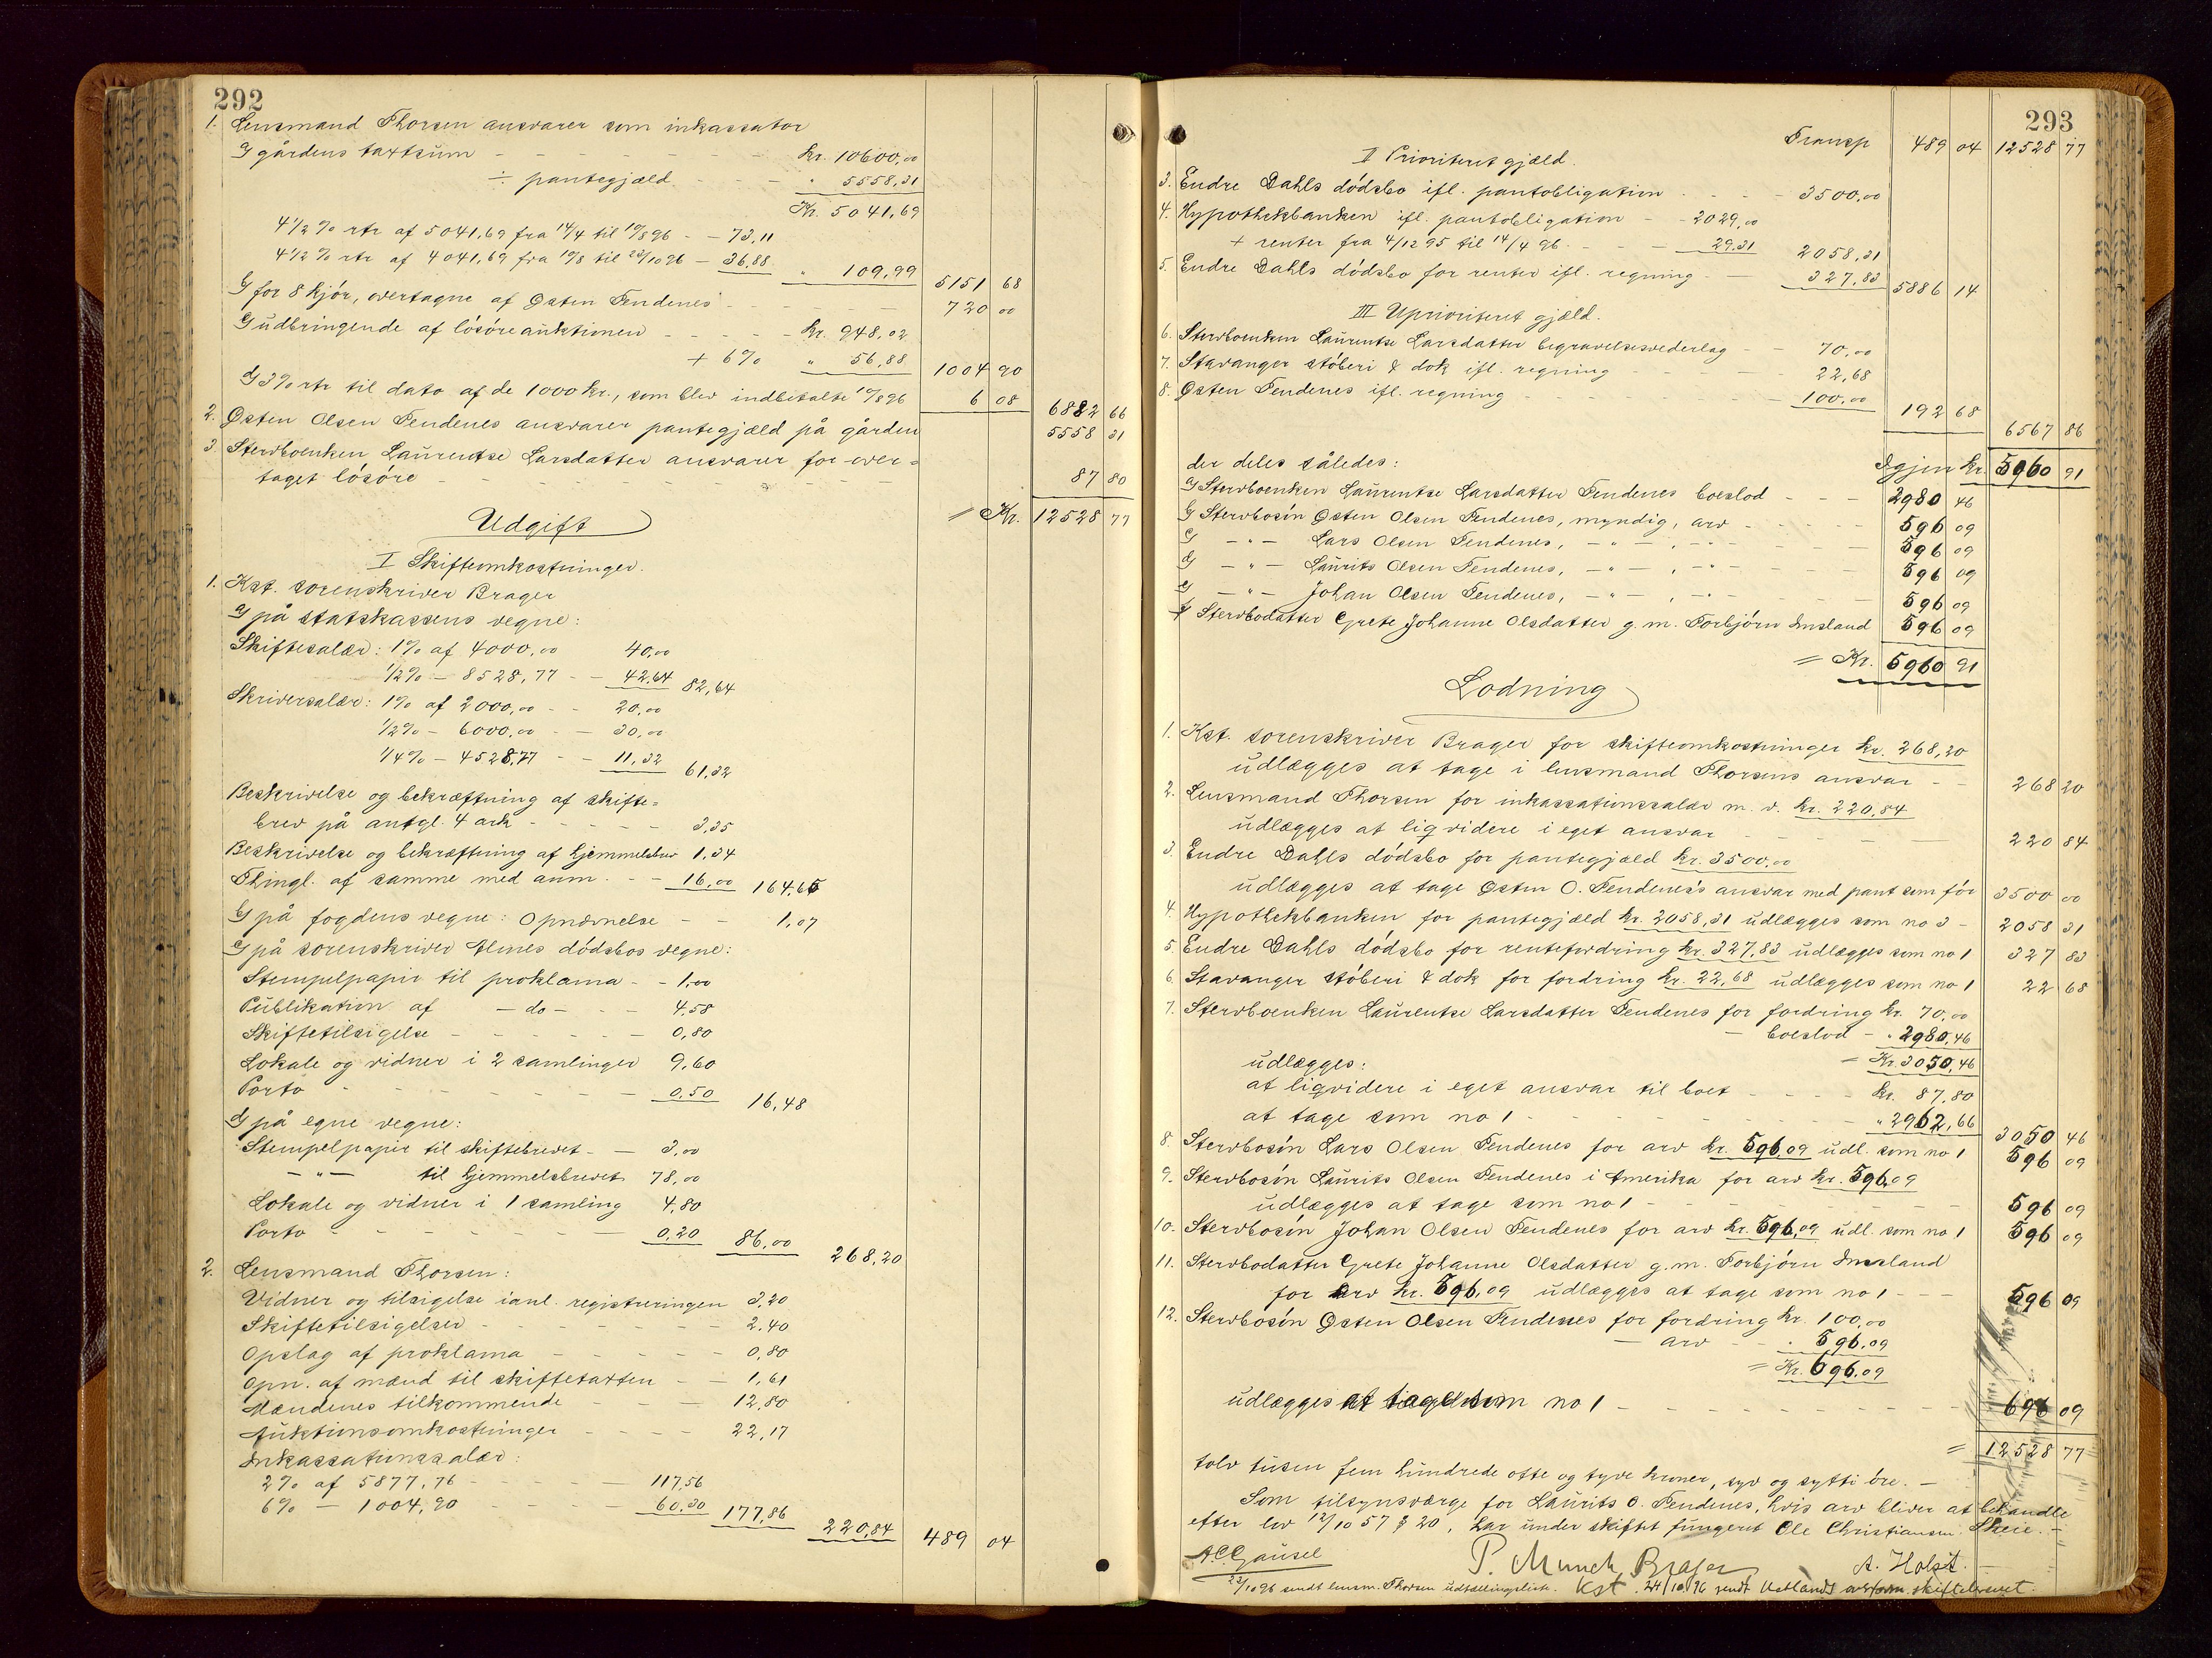 292
1. Lensmand Thorsen ansvarer som inkassator
Ɔ: gårdens taxtsum - - - - - - kr. 10600,00
÷ pantegjæld - - - " 5558,31
Kr. 5041,69
4 1/2 % rtr af 5041,69 fra 14/4 til 19/8 96 - - 73,11
4 1/2 % rtr af 4041,69 fra 19/8 til 23/10 96 - 36,88 " 109,99 5151 68
for 8 kjör, overtagne af Østen Tendenes - - - 720 00
udbringende af lösöreauktionen - - - - kr. 948,02
+ 6% " 56,88 1004 90
3% rtr til dato af de 1000 kr., som blev indbetalte 19/8 96 6 08 6882 66
2. Østen Olsen Tendenes ansvarer pantegjæld på gården 5558 31
3. Stervboenken Laurentse Larsdatter ansvarer for over-
taget lösöre - - - - - - - - 87 80
= Kr. 12528 77
Udgift
I Skifteomkostninger.
1. Kst. sorenskriver Brager
på statskassens vegne:
Skiftesalær: 1% af 4000,00 40,00
1/2% - 8528,77 - - 42,64 82,64
Skriversalær: 1% af 2000,00 - - 20,00
1/2% - 6000,00 - - 30,00
1/4% - 4528,77 - - 11,32 61,32
Beskrivelse og bekræftning af skifte-
brev på antgl. 4 ark - - - - - 3,35
Beskrivelse og bekræftning af hjemmelsbrev 1,34
Thingl. af samme med anm. - - 16,00 164,65
på fogdens vegne: Opnævnelse - - 1,07
på sorenskriver Almes dödsbos vegne:
Stempelpapir til proklama - - 1,00
Publikation af - do - - - 4,58
Skiftetilsigelse - - - - - 0,80
Lokale og vidner i 2 samlinger 9,60
Porto - - - - - - 0,50 16,48
på egne vegne:
Stempelpapir til skiftebrevet - - 3,00
- " - til hjemmelsbrevet 78,00
Lokale og vidner i 1 samling 4,80
Porto - - - - - - 0,20 86,00 268,20
2. Lensmand Thorsen:
Vidner og tilsigelse ianl. registreringen 3,20
Skiftetilsigelser - - - - - - 2,40
Opslag af proklama - - - - - 0,80
Opn. af mænd til skiftetaxten - - 1,61
Mændenes tilkommende - - - 12,80
Auktionsomkostninger - - - - 22,17
Inkassationssalær:
2% af 5877,76 - - - - 117,56
6% - 1004,90 - - - - 60,30 177,86 220,84 489 04
293
Transp 489 04 12528 77
II Prioriteret gjæld.
3. Endre Dahls dödsbo ifl. pantobligation - - - 3500,00
4. Hypothekbanken ifl. pantobligation - - 2029,00
+ renter fra 4/12 95 til 14/4 96 - - - 29,31 2058,31
5. Endre Dahls dödsbo for renter ifl. regning - - 327,83 5886 14
III Uprioriteret gjæld.
6. Stervboenken Laurentse Larsdatter begravelsesvederlag - - 70,00
7. Stavanger stöberi & dok ifl. regning - - - - 22,68
8. Østen Tendenes ifl. regning - - - - - - 100,00 192 68 6567 86
Igjen Kr. 5960 91
der deles således:
Stervboenken Laurentse Larsdatter Tendenes boeslod - - - 2980 46
Stervbosön Østen Olsen Tendenes, myndig, arv - - - - 596 09
- " - Lars Olsen Tendenes, - " - , - " - - - - 596 09
- " - Laurits Olsen Tendenes, - " - , - " - - - - 596 09
- " - Johan Olsen Tendenes, - " - , - " - - - - 596 09
Stervbodatter Grete Johanne Olsdatter g. m. Torbjörn Imsland 596 09
= Kr. 5960 91
Lodning
1. Kst. sorenskriver Brager for skifteomkostninger kr. 268,20
udlægges at tage i lensmand Thorsens ansvar - - 268 20
2. Lensmand Thorsen for inkassationssalær m. v. kr. 220,84
udlægges at liqvidere i eget ansvar - - - - 220 84
3. Endre Dahls dödsbo for pantegjæld kr. 3500,00
udlægges at tage Østen O. Tendenes's ansvar med pant som för 3500 00
4. Hypothekbanken for pantegjæld kr. 2058,31 udlægges som no 3 - 2058 31
5. Endre Dahls dödsbo for rentefordring kr. 327,83 udlægges som no 1 327 83
6. Stavanger stöberi & dok for fordring kr. 22,68 udlægges som no 1 22 68
7. Stervboenken Laurentse Larsdatter Tendenes for fordring kr. 70,00
- boeslod - " 2980,46
= Kr. 3050,46
udlægges:
at liqvidere i eget ansvar til boet - - - - kr. 87,80
at tage som no 1 - - - - - - " 2962,66 3050 46
8. Stervbosön Lars Olsen Tendenes for arv kr. 596,09 udl. som no 1 596 09
9. Stervbosön Laurits Olsen Tendenes i Amerika for arv kr. 596,09
udlægges at tage som no 1 - - - - - - 596 09
10. Stervbosön Johan Olsen Tendenes for arv kr. 596,09 udl. som no 1 596 09
11. Stervbodatter Grete Johanne Olsdatter g. m. Torbjörn Imsland
for arv kr. 596,09 udlægges at tage som no 1 - - - 596 09
12. Stervbosön Østen Olsen Tendenes for fordring kr. 100,00
- arv - - " 596,09
= Kr. 696,09
udlægges at tage som no 1 - - - - - - 696 09
= 12528 77
tolv tusen fem hundrede otte og tyve kroner, syv og sytti öre. -
Som tilsynsværge for Laurits O. Tendenes, hvis arv bliver at behandle
efter lov 12/10 57 § 20, har under skiftet fungeret Ole Christiansen Skeie. -
A. C. Gausel P. Munch Brager A. Holst.
23/10 96 sendt lensm. Thorsen udtællingslisten. Kst. 24/10 96 sendt skiftebrevet.